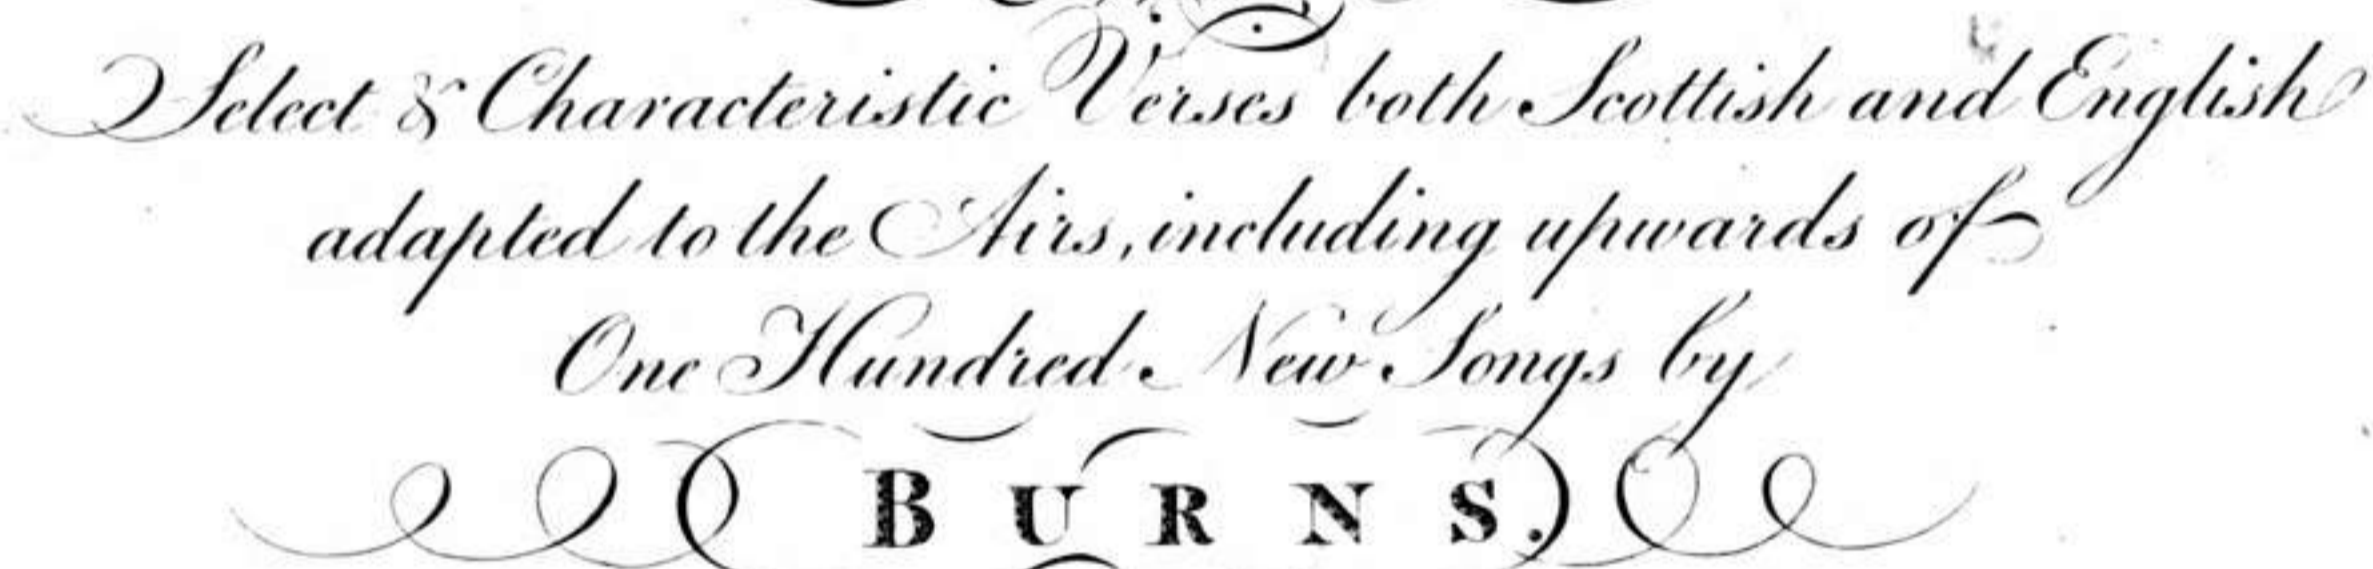 Select & Characteristic Verses both Scottish and English
adapted to the Airs, including upwards of
One Hundred New Songs by
BURNS.